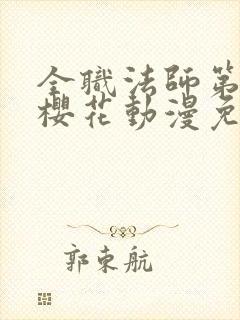 全職法師第
櫻花動漫免
郭東航